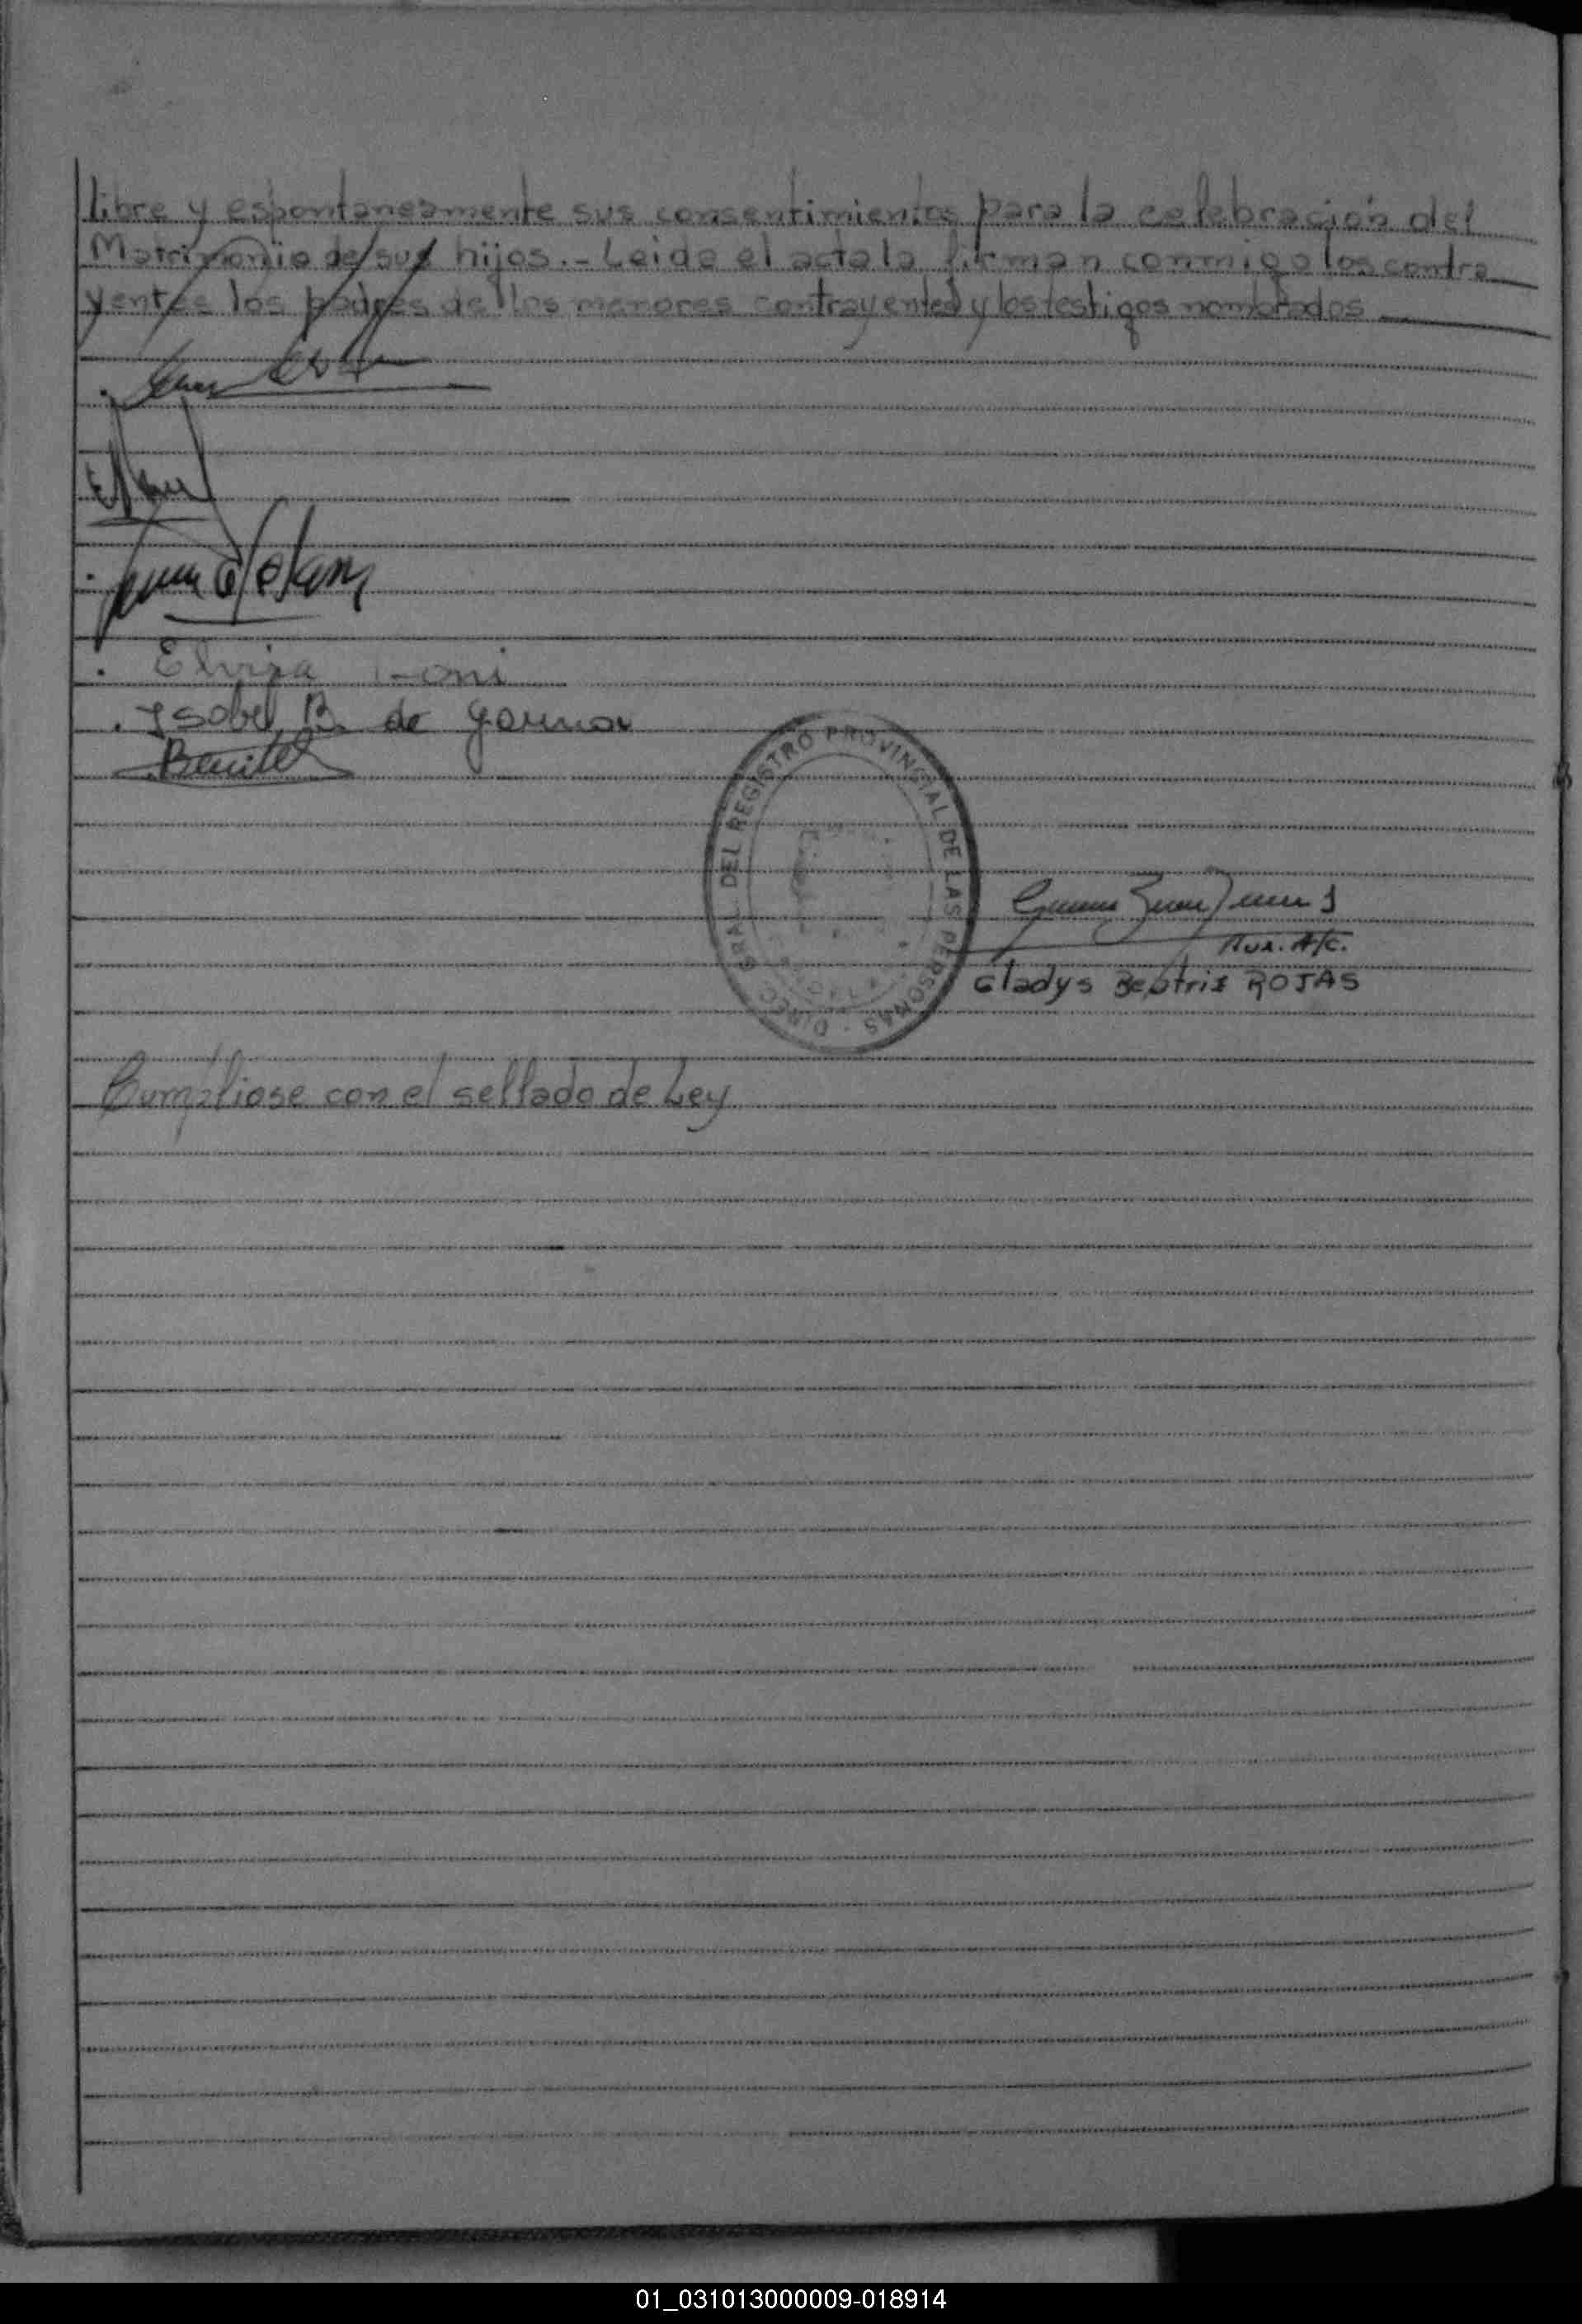 libre y espontaneamente sus consentimientos para la celebración del
Matrimonio de sus hijos.- Leida el acta la firman conmigo los contra
yentes los padres de los menores contrayentes y los testigos nombrados
Elvira
Isabel B. de
Benitez
DIRECC. GRAL. DEL REGISTRO PROVINCIAL DE LAS PERSONAS
Aux. A/C.
Gladys Beatriz ROJAS
Cumpliose con el sellado de Ley
01_031013000009-018914